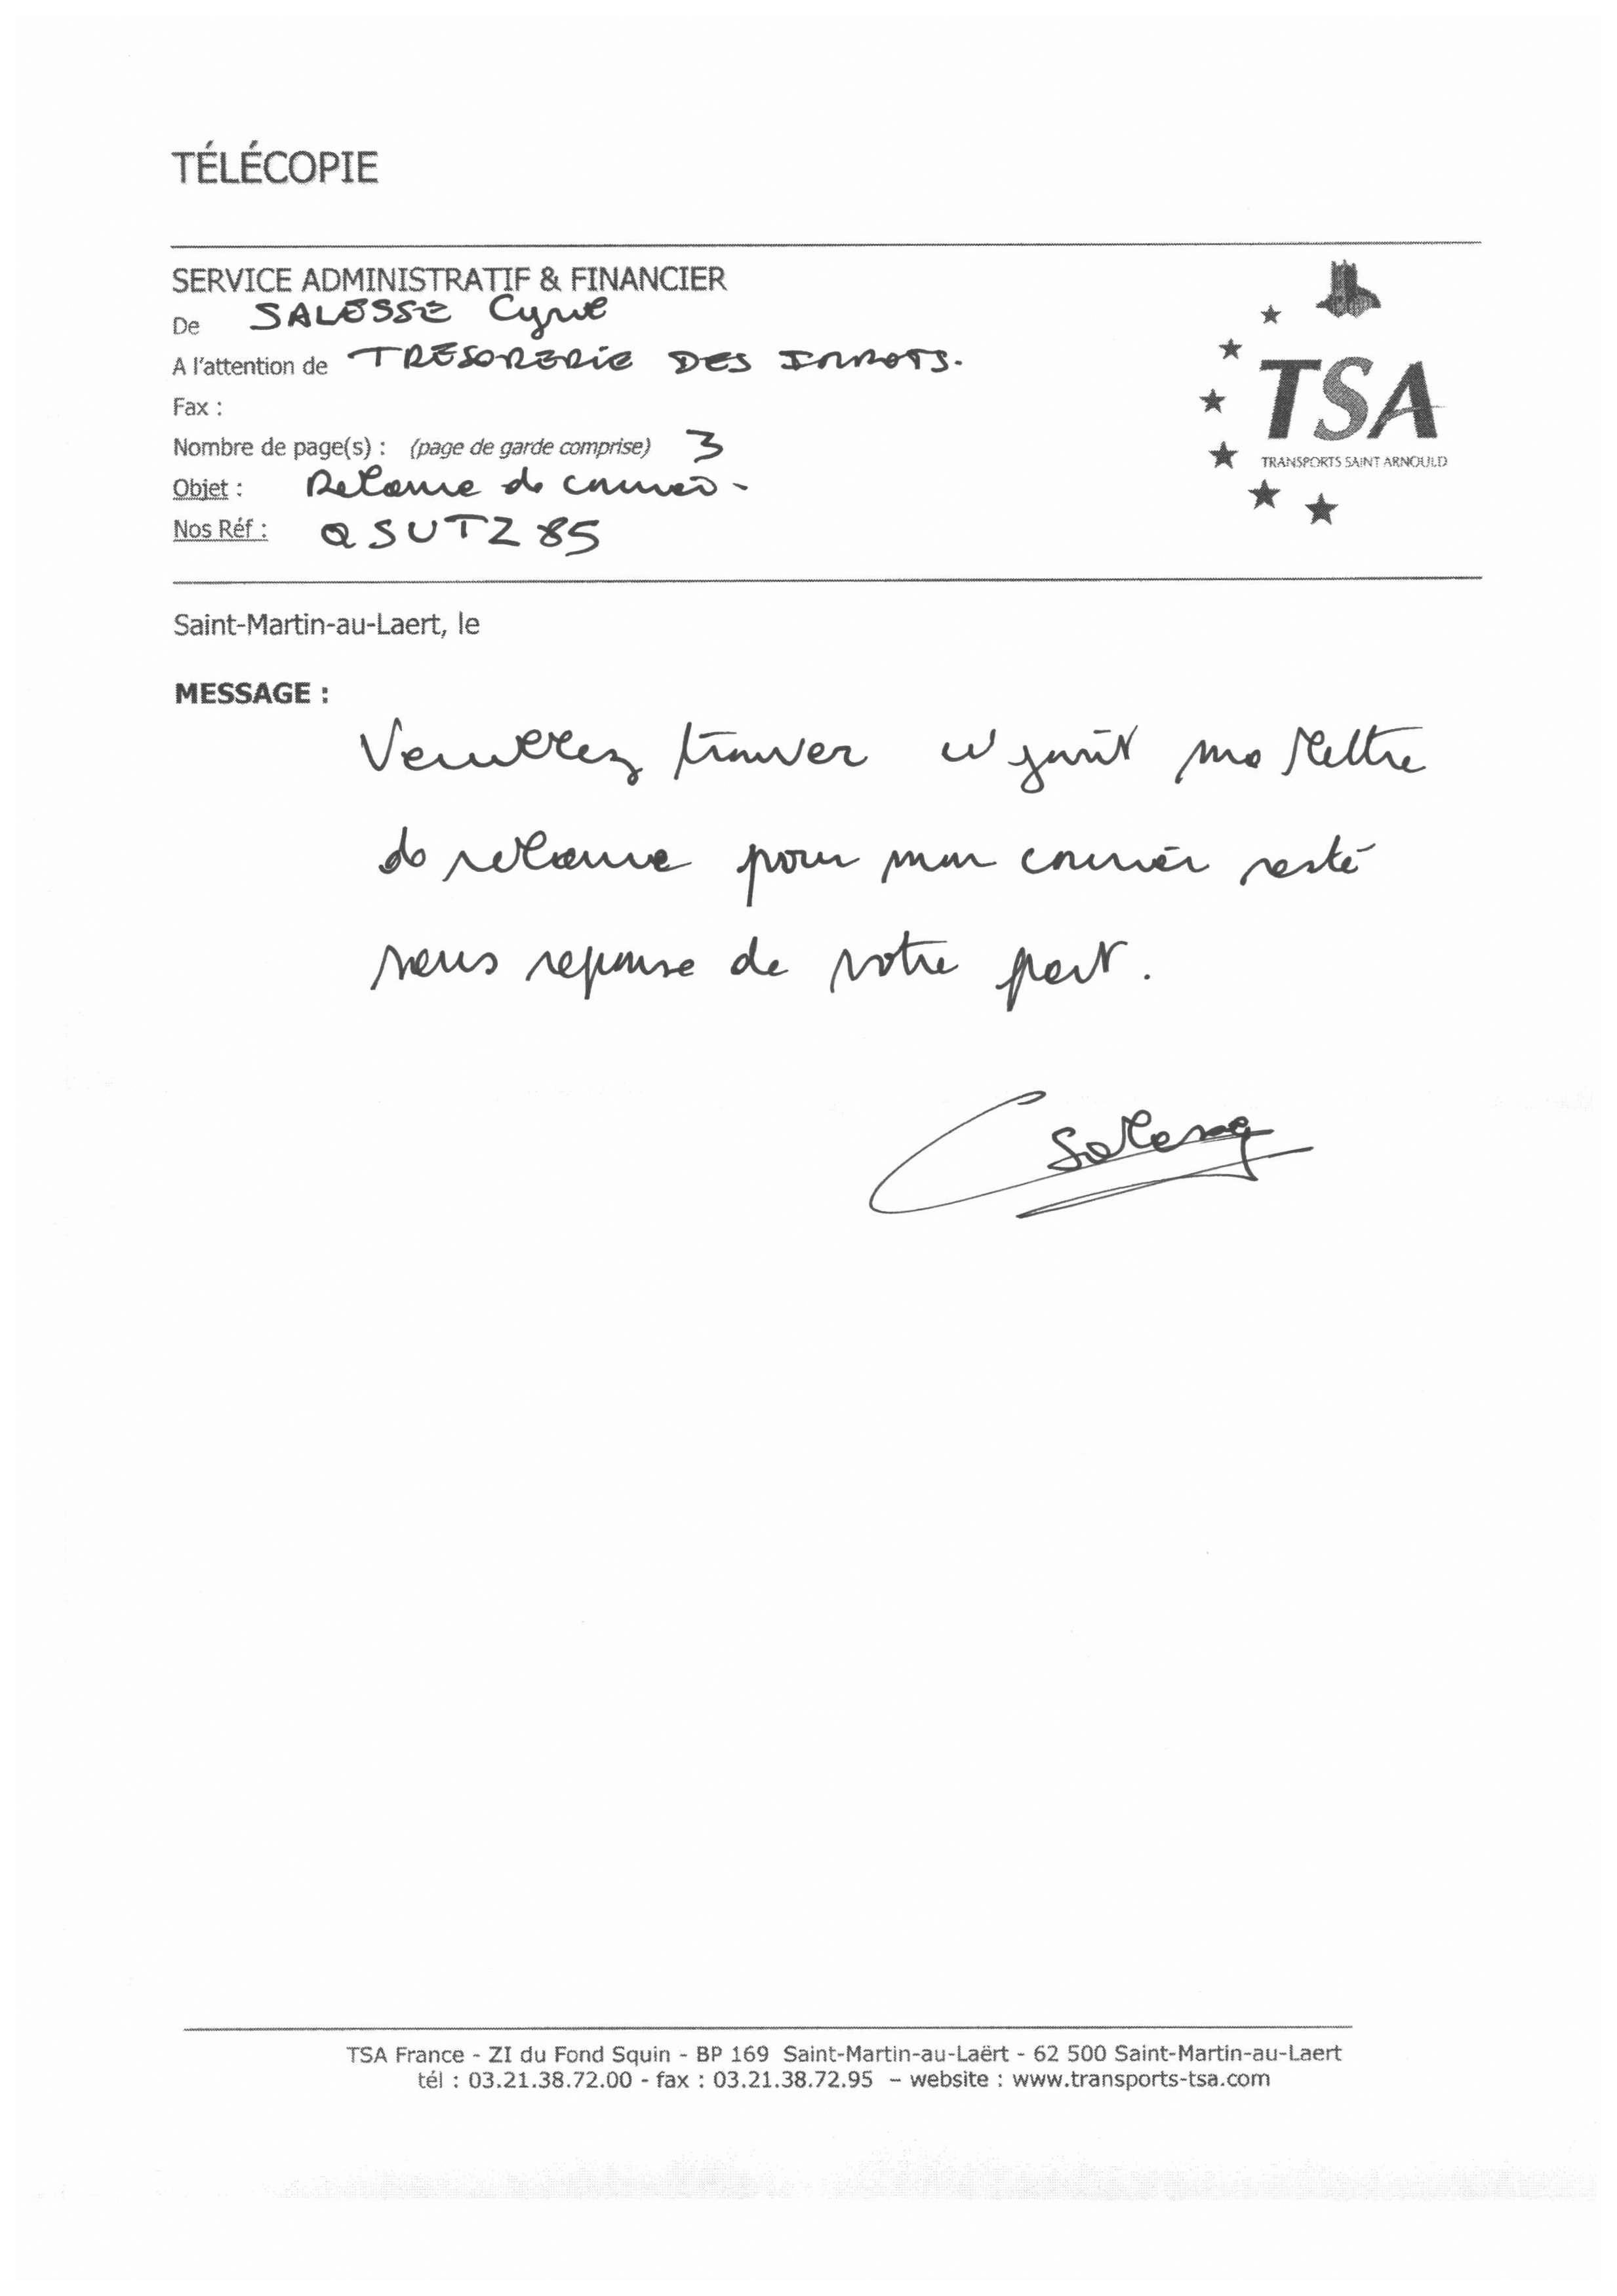 TÉLÉCOPIE
SERVICE ADMINISTRATIF & FINANCIER
De SALESSE Cyril
A l'attention de TRÉSORERIE DES IMPOTS.
Fax :
Nombre de page(s) : (page de garde comprise) 3
Objet : Relance de courrier -
Nos Réf : QSUTZ85
TSA
TRANSPORTS SAINT ARNOULD
Saint-Martin-au-Laert, le
MESSAGE :
Veuillez trouver ci joint ma lettre
de relance pour mon courrier resté
sans reponse de votre part.
CSalesse
TSA France - ZI du Fond Squin - BP 169 Saint-Martin-au-Laërt - 62 500 Saint-Martin-au-Laert
tél : 03.21.38.72.00 - fax : 03.21.38.72.95 – website : www.transports-tsa.com